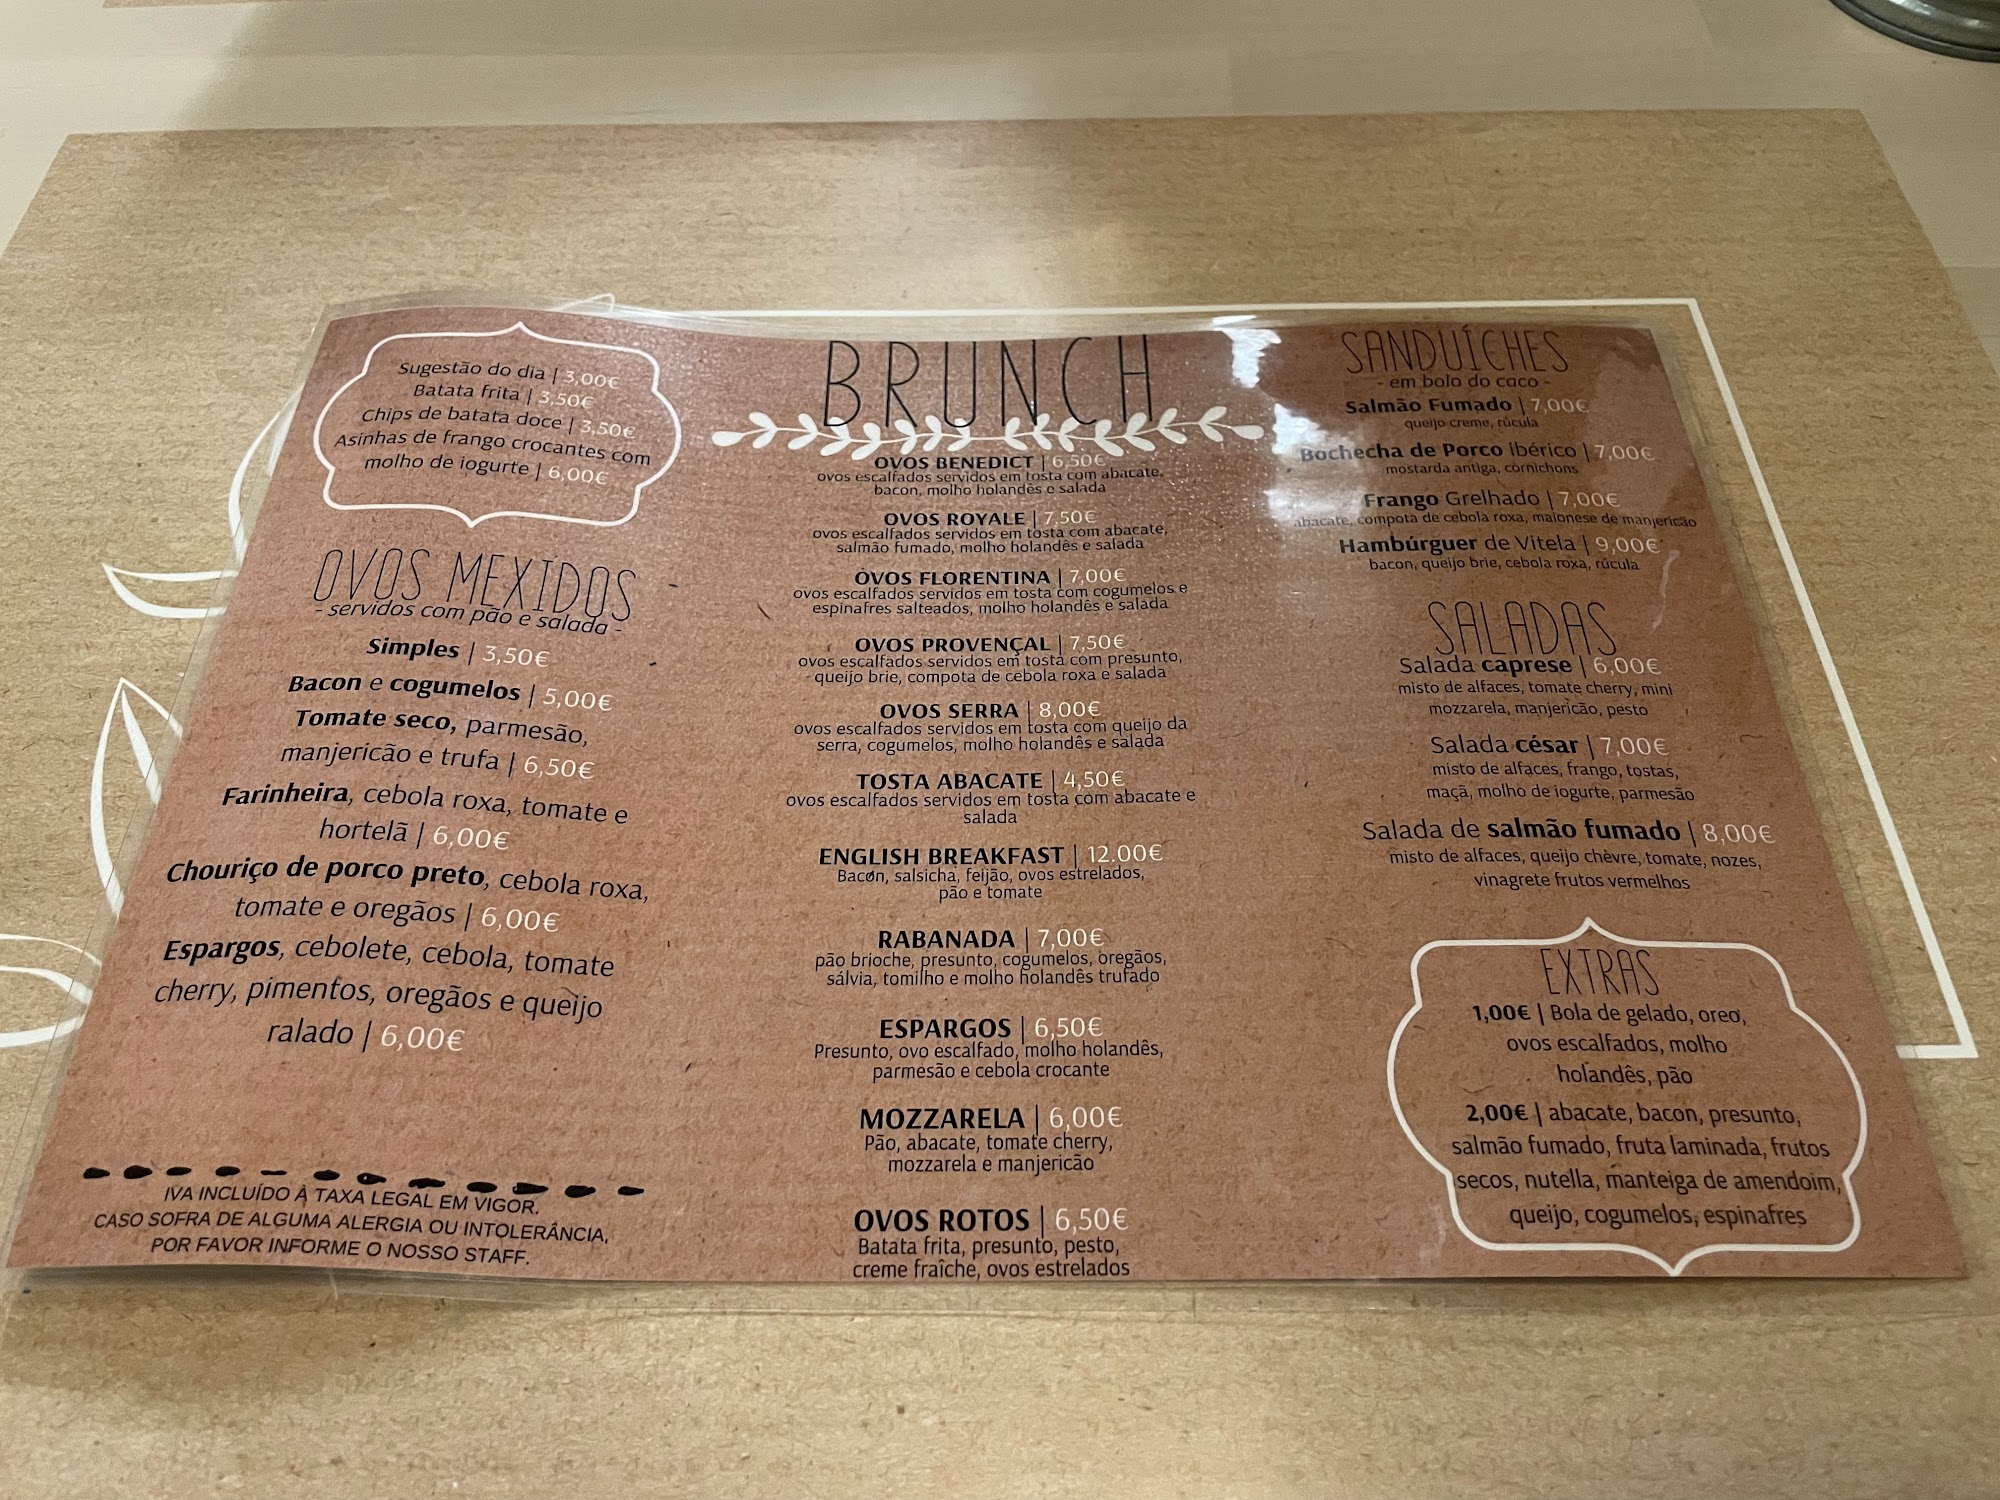 Sugestão do dia | 3,00€
Batata frita | 3,50€
Chips de batata doce | 3,50€
Asinhas de frango crocantes com
molho de iogurte | 6,00€
OVOS MEXIDOS
- servidos com pão e salada -
Simples | 3,50€
Bacon e cogumelos | 5,00€
Tomate seco, parmesão,
manjericão e trufa | 6,50€
Farinheira, cebola roxa, tomate e
hortelã | 6,00€
Chouriço de porco preto, cebola roxa,
tomate e oregãos | 6,00€
Espargos, cebolete, cebola, tomate
cherry, pimentos, oregãos e queijo
ralado | 6,00€
IVA INCLUÍDO À TAXA LEGAL EM VIGOR.
CASO SOFRA DE ALGUMA ALERGIA OU INTOLERÂNCIA,
POR FAVOR INFORME O NOSSO STAFF.
BRUNCH
OVOS BENEDICT | 6,50€
ovos escalfados servidos em tosta com abacate,
bacon, molho holandês e salada
OVOS ROYALE | 7,50€
ovos escalfados servidos em tosta com abacate,
salmão fumado, molho holandês e salada
OVOS FLORENTINA | 7,00€
ovos escalfados servidos em tosta com cogumelos e
espinafres salteados, molho holandês e salada
OVOS PROVENÇAL | 7,50€
ovos escalfados servidos em tosta com presunto,
queijo brie, compota de cebola roxa e salada
OVOS SERRA | 8,00€
ovos escalfados servidos em tosta com queijo da
serra, cogumelos, molho holandês e salada
TOSTA ABACATE | 4,50€
ovos escalfados servidos em tosta com abacate e
salada
ENGLISH BREAKFAST | 12.00€
Bacon, salsicha, feijão, ovos estrelados,
pão e tomate
RABANADA | 7,00€
pão brioche, presunto, cogumelos, oregãos,
sálvia, tomilho e molho holandês trufado
ESPARGOS | 6,50€
Presunto, ovo escalfado, molho holandês,
parmesão e cebola crocante
MOZZARELA | 6,00€
Pão, abacate, tomate cherry,
mozzarela e manjericão
OVOS ROTOS | 6,50€
Batata frita, presunto, pesto,
creme fraîche, ovos estrelados
SANDUÍCHES
- em bolo do caco -
Salmão Fumado | 7,00€
queijo creme, rúcula
Bochecha de Porco ibérico | 7,00€
mostarda antiga, cornichons
Frango Grelhado | 7,00€
abacate, compota de cebola roxa, maionese de manjericão
Hambúrguer de Vitela | 9,00€
bacon, queijo brie, cebola roxa, rúcula
SALADAS
Salada caprese | 6,00€
misto de alfaces, tomate cherry, mini
mozzarela, manjericão, pesto
Salada césar | 7,00€
misto de alfaces, frango, tostas,
maçã, molho de iogurte, parmesão
Salada de salmão fumado | 8,00€
misto de alfaces, queijo chèvre, tomate, nozes,
vinagrete frutos vermelhos
EXTRAS
1,00€ | Bola de gelado, oreo,
ovos escalfados, molho
holandês, pão
2,00€ | abacate, bacon, presunto,
salmão fumado, fruta laminada, frutos
secos, nutella, manteiga de amendoim,
queijo, cogumelos, espinafres